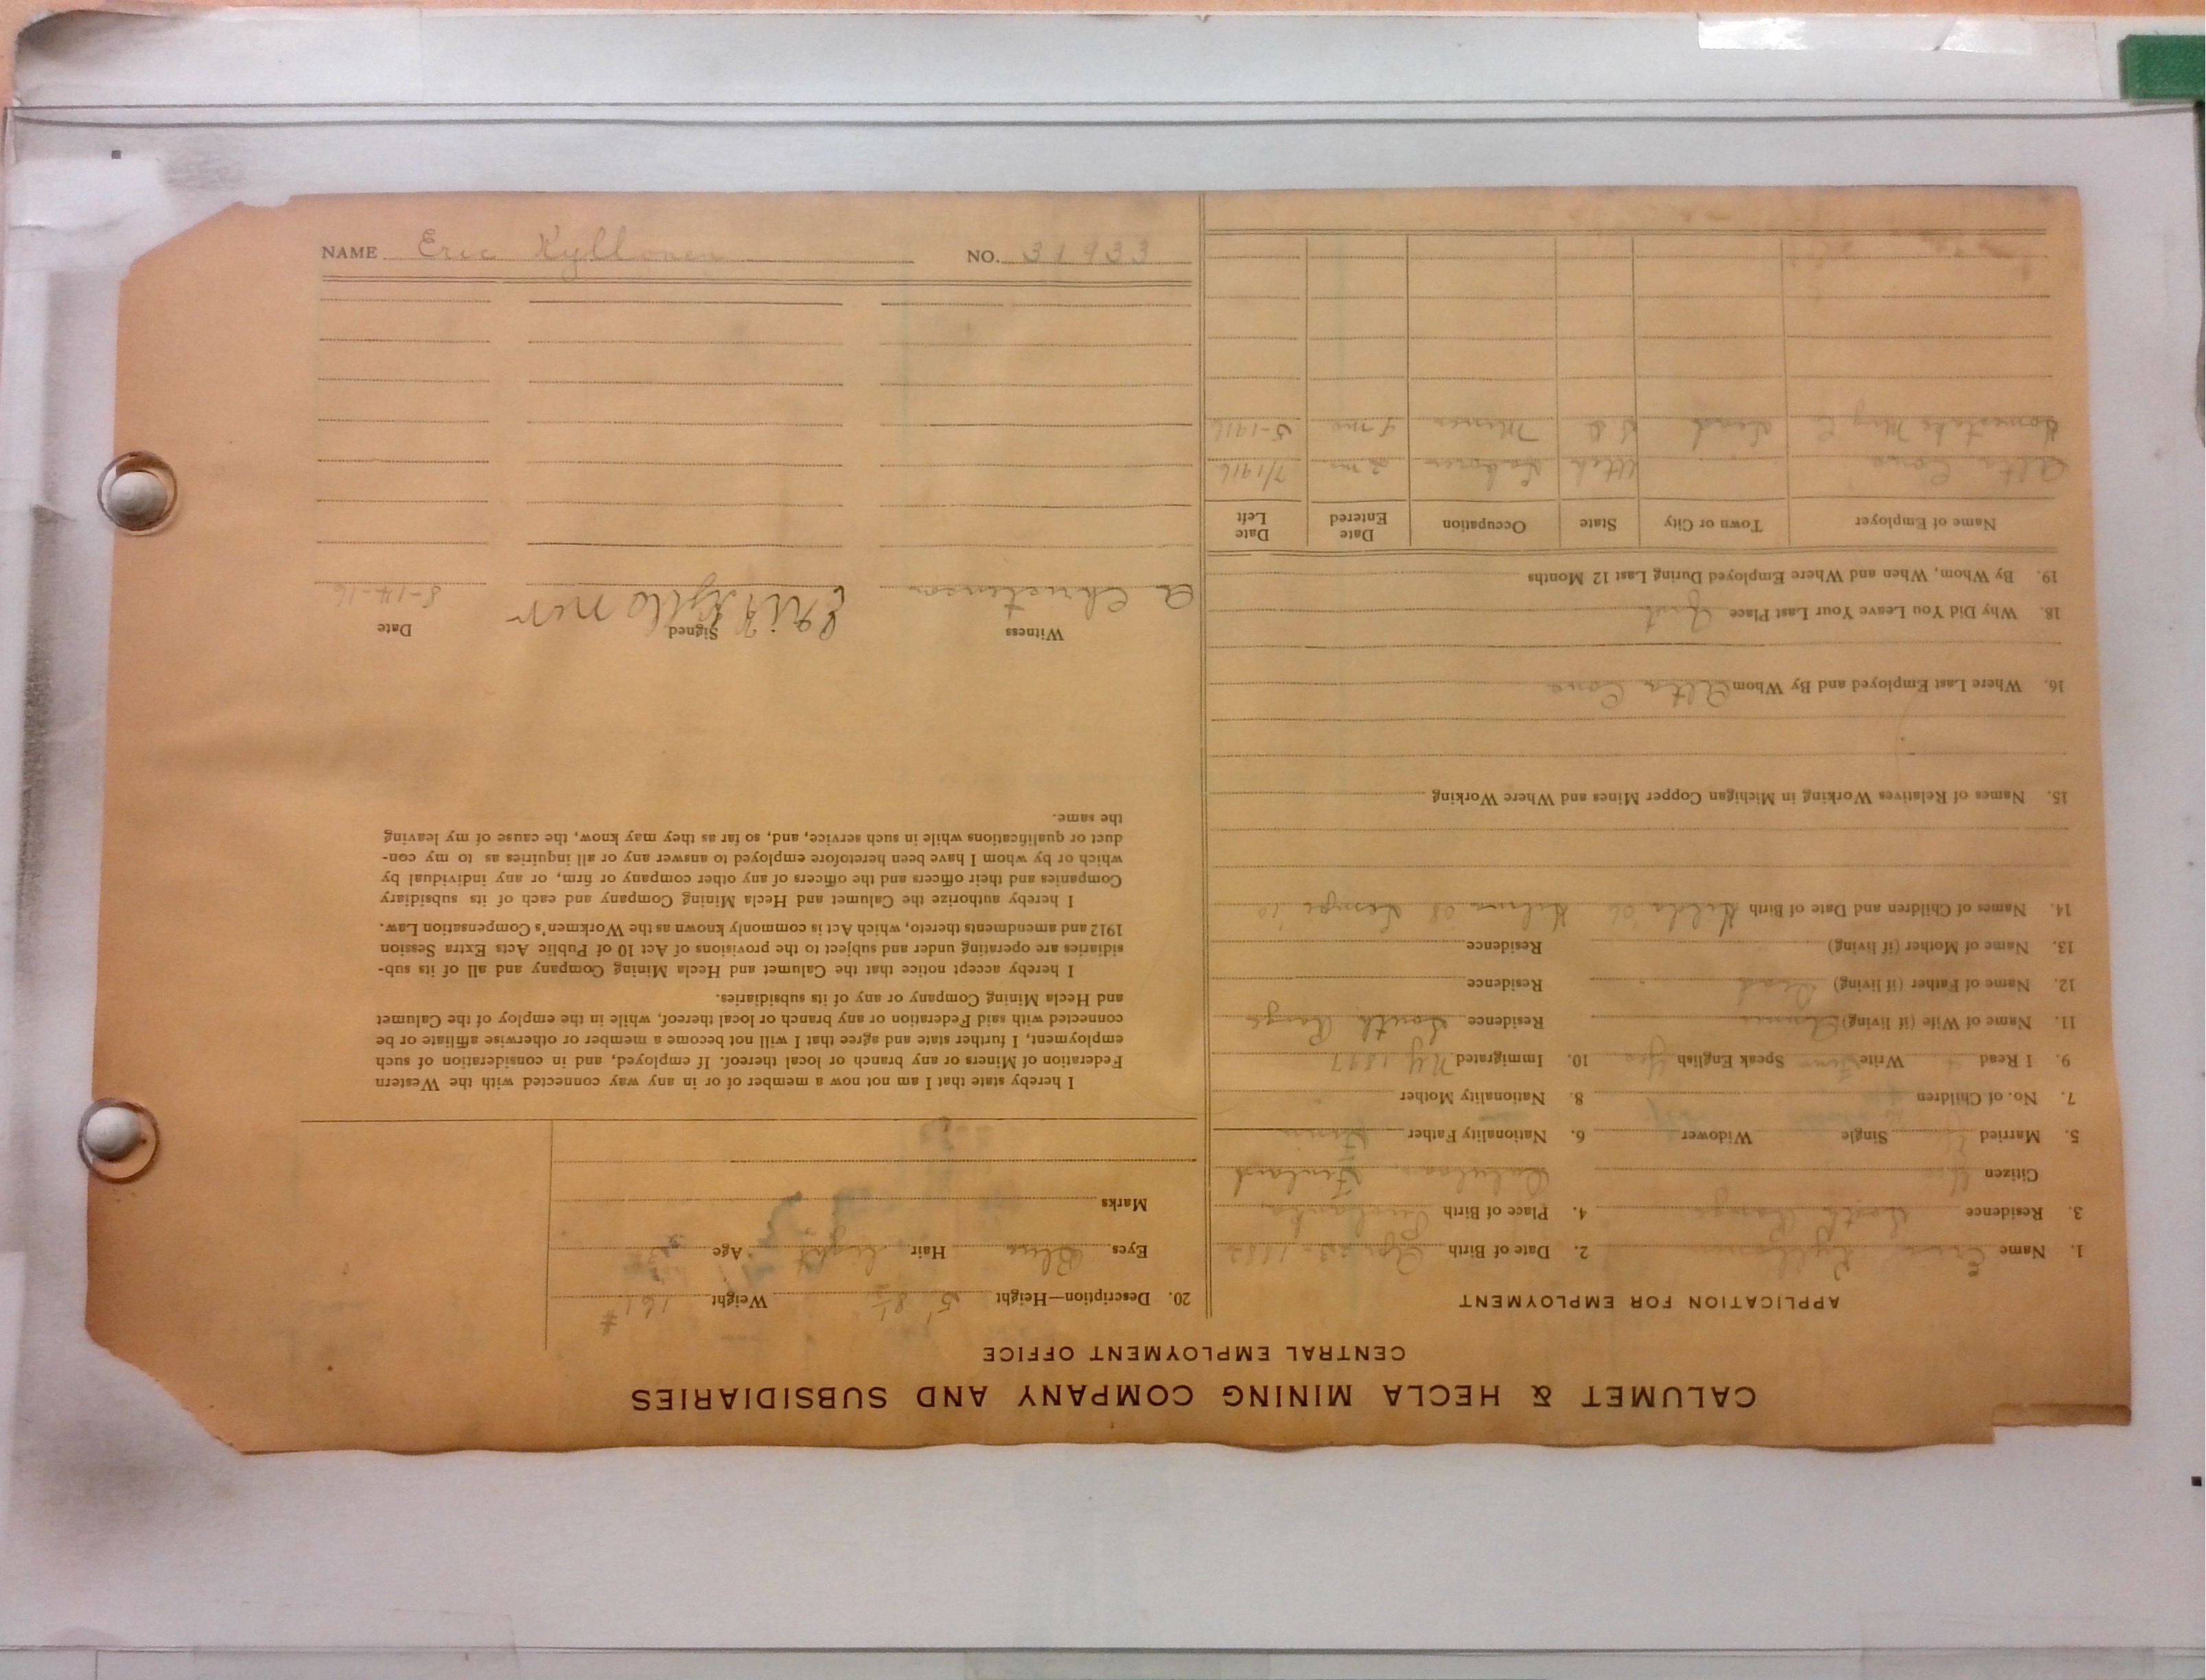 CALUMET & HECLA MINING COMPANY AND SUBSIDIARIES
CENTRAL EMPLOYMENT OFFICE
APPLICATION FOR EMPLOYMENT
1. Name Eric Kyllonen 2. Date of Birth 1882
3. Residence South Range 4. Place of Birth
Citizen Finland
5. Married Single Widower 6. Nationality Father
7. No. of Children 8. Nationality Mother
9. I Read Write Speak English Yes 10. Immigrated N.Y. 1897
11. Name of Wife (if living) Residence South Range
12. Name of Father (if living) Dead Residence
13. Name of Mother (if living) Residence
14. Names of Children and Date of Birth Hilda 06 08 10
15. Names of Relatives Working in Michigan Copper Mines and Where Working
16. Where Last Employed and By Whom Alta Cons
18. Why Did You Leave Your Last Place Quit
19. By Whom, When and Where Employed During Last 12 Months
Name of Employer Town or City State Occupation Date Entered Date Left
Alta Cons Utah Laborer 2 mo 7/1916
Homestake Mng Co Lead S D Miner 9 mo 5-1916
20. Description—Height 5' 8½ Weight 161 #
Eyes Blue Hair Light Age
Marks
I hereby state that I am not now a member of or in any way connected with the Western
Federation of Miners or any branch or local thereof. If employed, and in consideration of such
employment, I further state and agree that I will not become a member or otherwise affiliate or be
connected with said Federation or any branch or local thereof, while in the employ of the Calumet
and Hecla Mining Company or any of its subsidiaries.
I hereby accept notice that the Calumet and Hecla Mining Company and all of its sub-
sidiaries are operating under and subject to the provisions of Act 10 of Public Acts Extra Session
1912 and amendments thereto, which Act is commonly known as the Workmen's Compensation Law.
I hereby authorize the Calumet and Hecla Mining Company and each of its subsidiary
Companies and their officers and the officers of any other company or firm, or any individual by
which or by whom I have been heretofore employed to answer any or all inquiries as to my con-
duct or qualifications while in such service, and, so far as they may know, the cause of my leaving
the same.
Witness Signed Date
A Christensen 8-14-16
NAME Eric Kyllonen NO. 31933